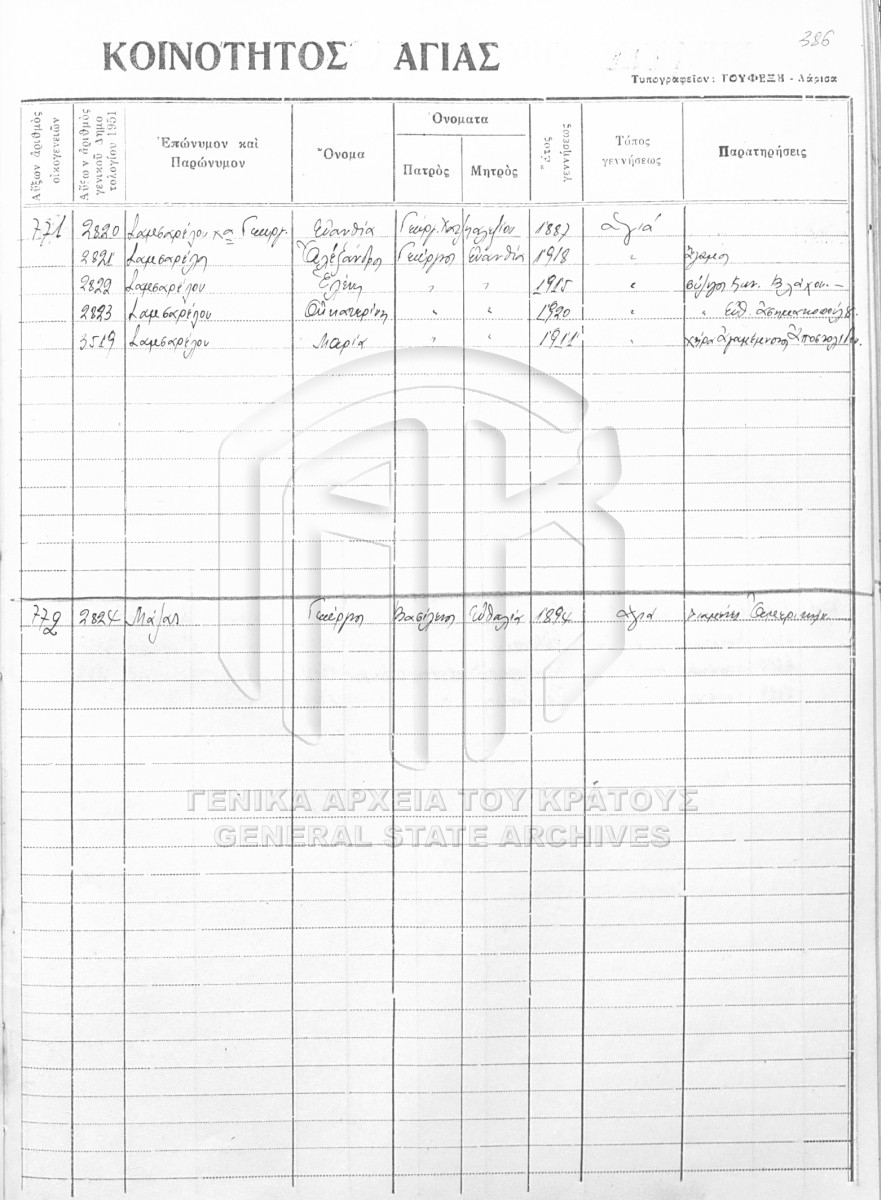 386
ΚΟΙΝΟΤΗΤΟΣ ΑΓΙΑΣ
Τυπογραφεῖον: ΓΟΥΦΕΞΗ - Λάρισα
Αὔξων ἀριθμὸς οἰκογενειῶν
Αὔξων ἀριθμὸς γενικοῦ Δημοτολογίου 1951
Ἐπώνυμον καὶ Παρώνυμον
Ὄνομα
Ονοματα
Πατρὸς
Μητρὸς
Ἔτος γεννήσεως
Τόπος γεννήσεως
Παρατηρήσεις
771 2820 Σαμσαρέλου χα Γεωργ. Εὐανθία Γεωργ. 1887 Ἁγιά
2821 Σαμσαρέλη Ἀλέξανδρος Γεώργιος Εὐανθία 1918 "
2822 Σαμσαρέλου Ἑλένη " " 1915 " σύζυγος Κων. Βλάχου
2823 Σαμσαρέλου Αἰκατερίνη " " 1920 " " Εὐθ.
3519 Σαμσαρέλου Μαρία " " 1911 " χήρα Ἀγαμέμνονος Ἀποστολίδου.
772 2824 Γεώργιος Βασίλειος Εὐθαλία 1894 Ἁγιά
ΓΕΝΙΚΑ ΑΡΧΕΙΑ ΤΟΥ ΚΡΑΤΟΥΣ
GENERAL STATE ARCHIVES